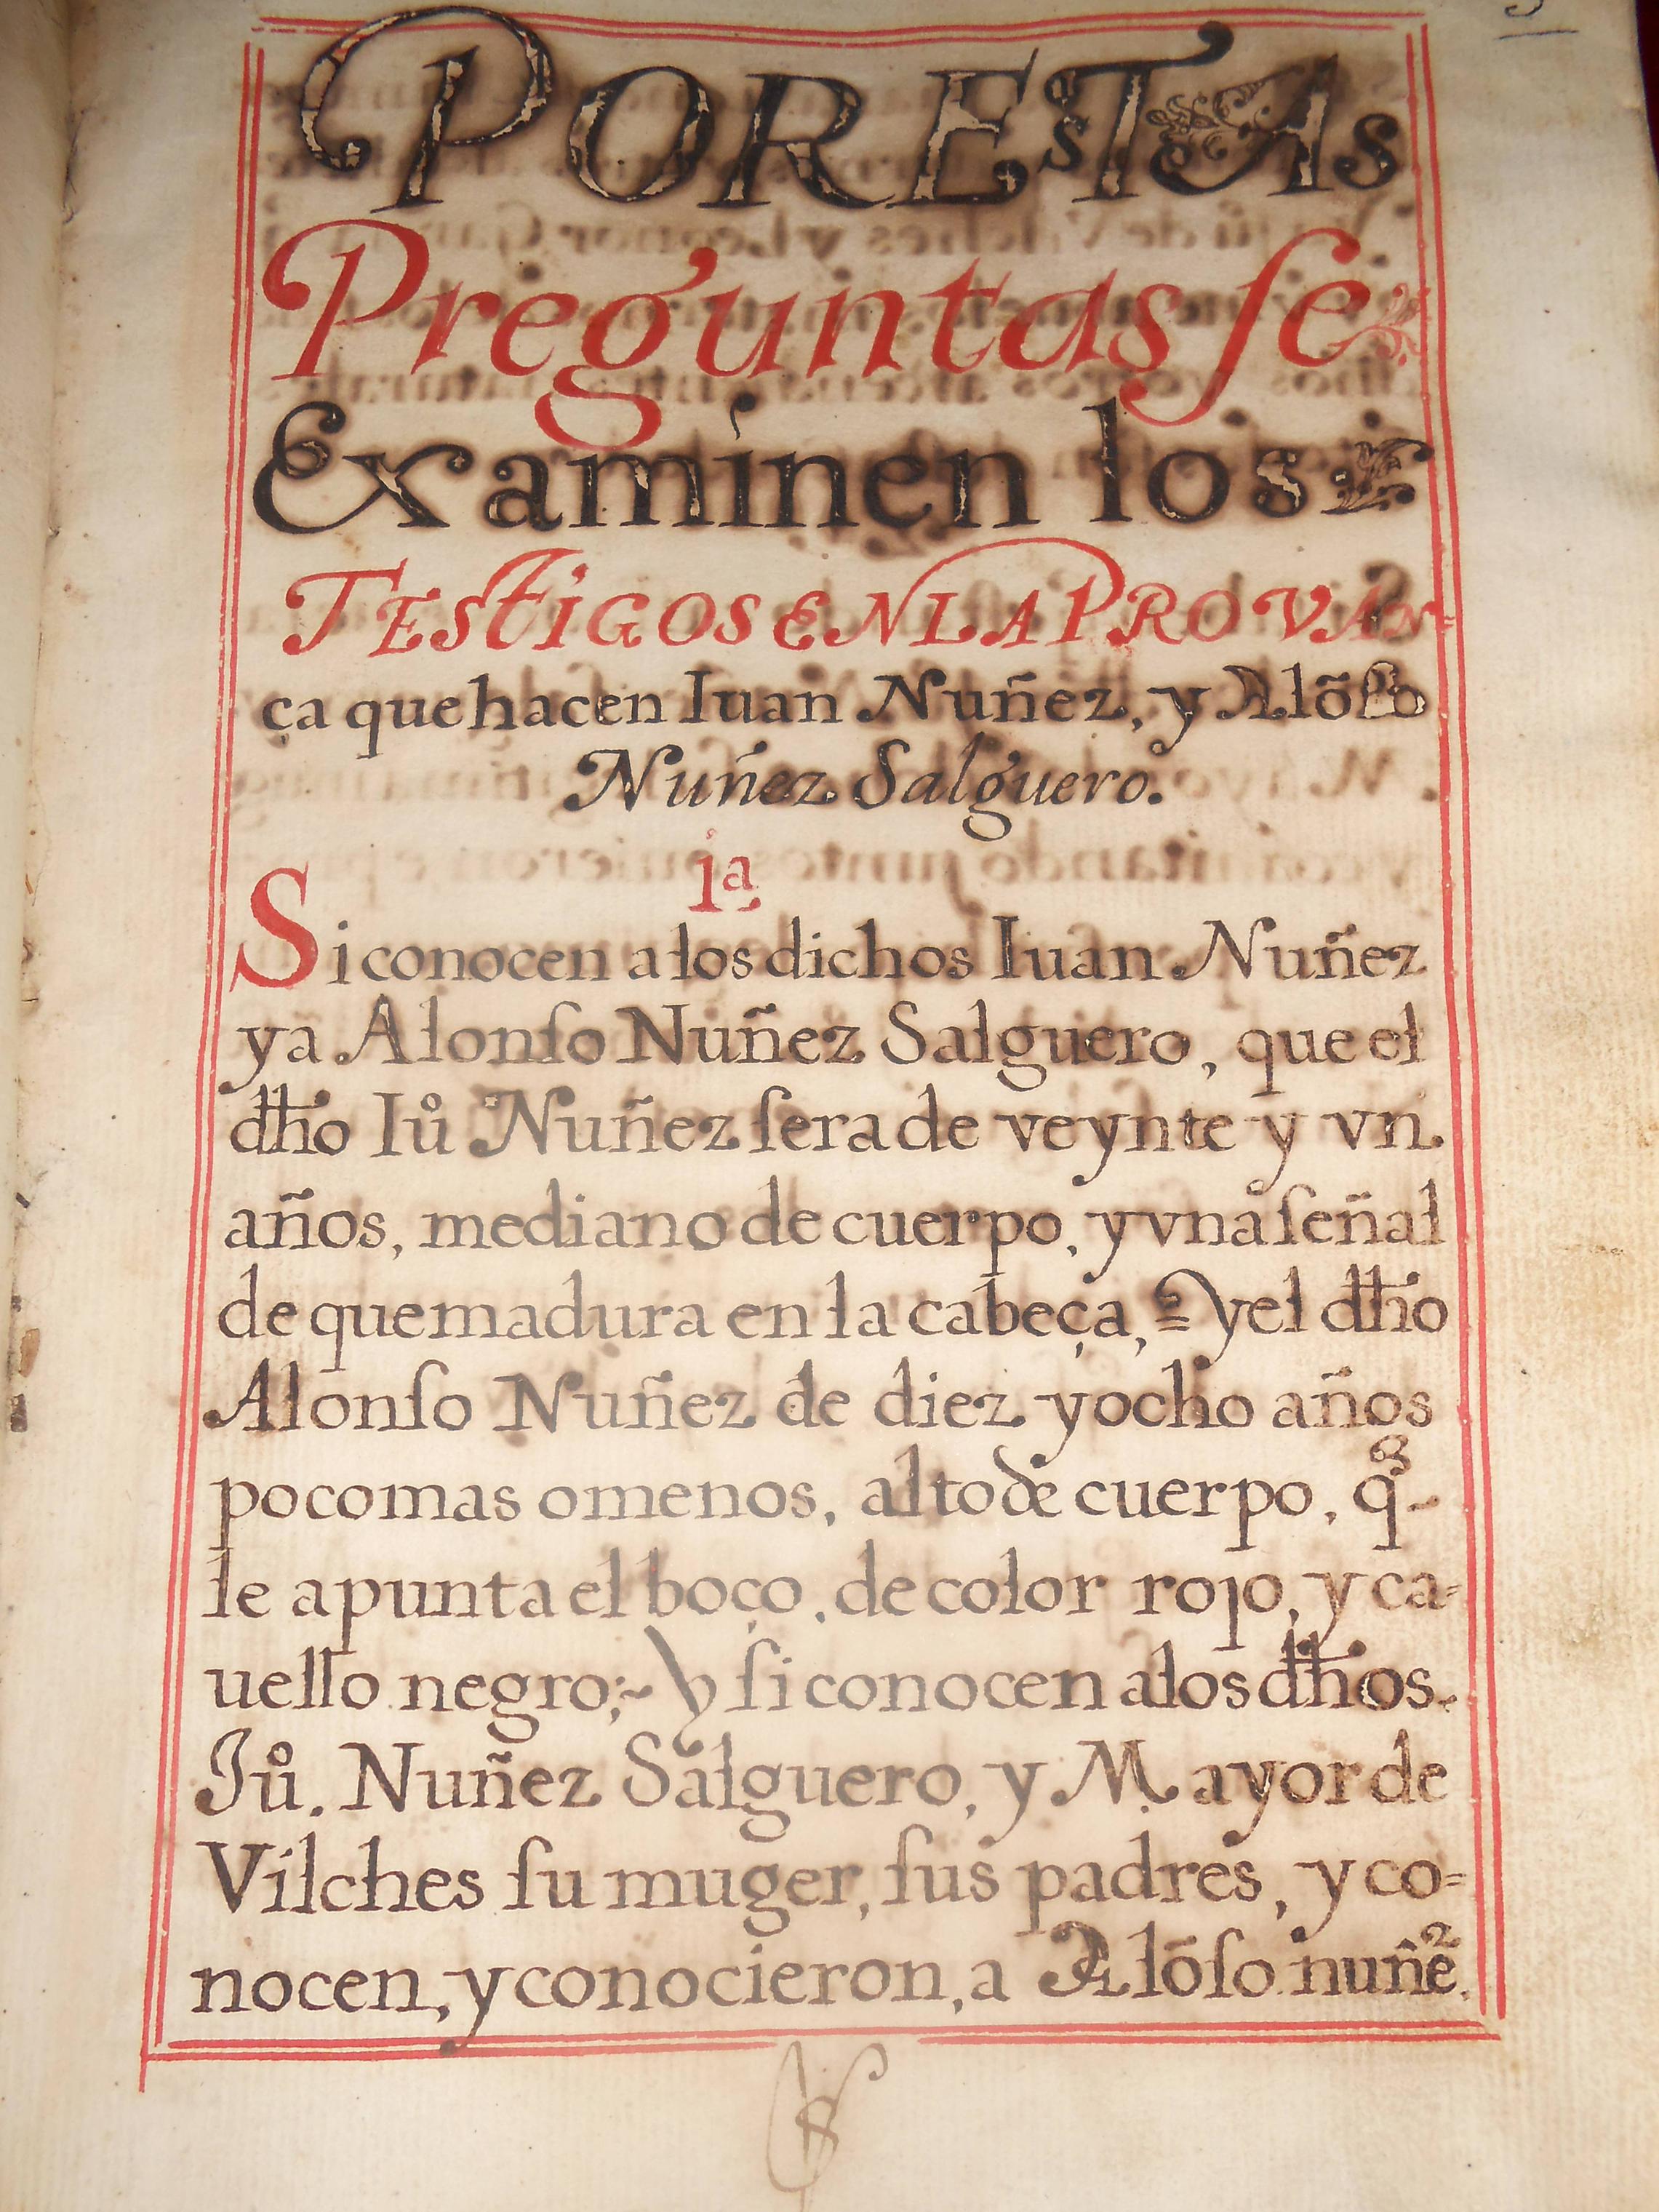 POR ESTAS
Preguntas ſe
Examinen los
TESTIGOS EN LA PROVAN=
ça que hacen Iuan Nuñez, y Alõſo
Nuñez Salguero.
1ª
Si conocen a los dichos Iuan Nuñez
y a Alonſo Nuñez Salguero, que el
dho Iuº Nuñez ſera de veynte y vn
años, mediano de cuerpo, y vna ſeñal
de quemadura en la cabeça, y el dho
Alonſo Nuñez de diez y ocho años
poco mas o menos, alto de cuerpo, q̃
le apunta el boço, de color rojo, y ca=
uello negro; y ſi conocen a los dhos
Iuº. Nuñez Salguero, y Mayor de
Vilches ſu muger, ſus padres, y co=
nocen, y conocieron, a Alõſo nuñez